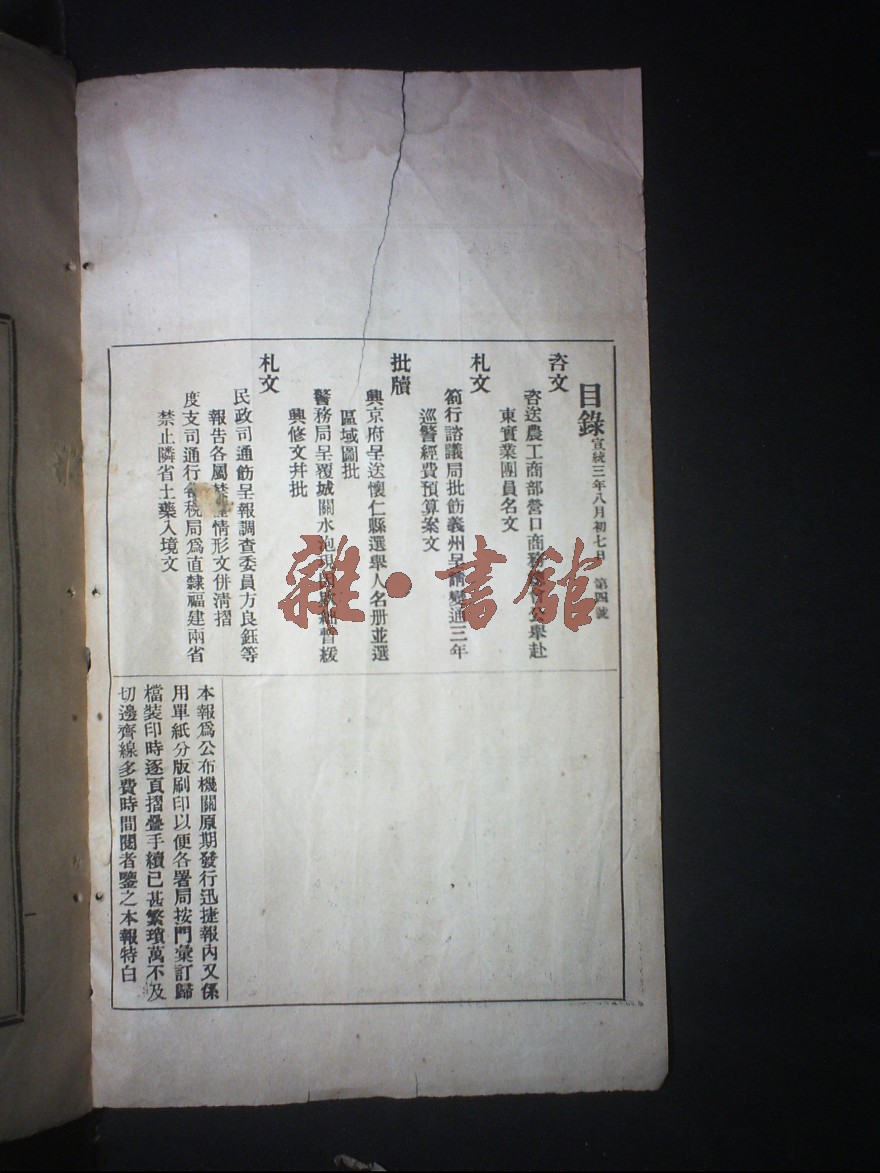 目錄 宣統三年八月初七日 第四號
咨文
咨送農工商部營口商務總會公舉赴
東實業團員名文
札文
箚行諮議局批飭義州呈請變通三年
巡警經費預算案文
批牘
興京府呈送懷仁縣選舉人名册並選
區域圖批
警務局呈覆城關水泡現因款絀暫緩
興修文幷批
札文
民政司通飭呈報調查委員方良鈺等
報告各屬禁煙情形文併淸摺
度支司通行各稅局爲直隸福建兩省
禁止隣省土藥入境文
本報爲公布機關原期發行迅捷報內又係
用單紙分版刷印以便各署局按門彙訂歸
檔裝印時逐頁摺疊手續已甚繁瑣萬不及
切邊齊線多費時間閱者鑒之本報特白
雜·書館